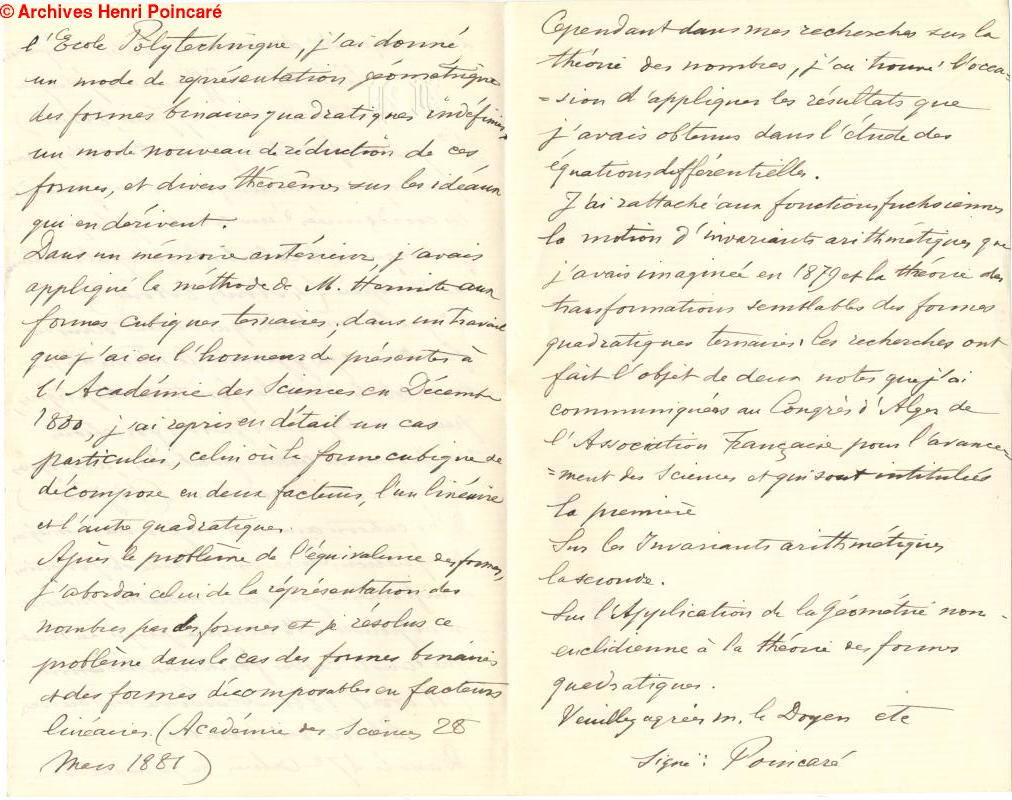 © Archives Henri Poincaré
l'Ecole Polytechnique, j'ai donné
un mode de représentation géométrique
des formes binaires quadratiques indéfinies,
un mode nouveau de réduction de ces
formes, et divers théorêmes sur les idéaux
qui en dérivent.
Dans un mémoire antérieur j'avais
appliqué la méthode de M. Hermite aux
formes cubiques ternaires, dans un travail
que j'ai eu l'honneur de présenter à
l'Académie des Sciences en Décembre
1880, j'ai repris en détail un cas
particulier, celui où la forme cubique se
décompose en deux facteurs, l'un linéaire
et l'autre quadratique.
Après le problème de l'équivalence des formes,
j'abordai celui de la représentation des
nombres par des formes et je résolus ce
problème dans le cas des formes binaires
et des formes décomposables en facteurs
linéaires. (Académie des Sciences 28
Mars 1881)
Cependant dans mes recherches sur la
théorie des nombres, j'ai trouvé l'occa-
=sion d'appliquer les résultats que
j'avais obtenus dans l'étude des
équations différentielles.
J'ai rattaché aux fonctions fuchsiennes
la notion d'invariants arithmétiques que
j'avais imaginée en 1879 et la théorie des
transformations semblables des formes
quadratiques ternaires. Ces recherches ont
fait l'objet de deux notes que j'ai
communiquées au Congrès d'Alger de
l'Association Française pour l'avance-
=ment des Sciences et qui sont intitulées
la première
Sur les Invariants arithmétiques
la seconde.
Sur l'Application de la Géométrie non-
euclidienne à la théorie des formes
quadratiques.
Veuillez agréer M. le Doyen etc
Signé: Poincaré